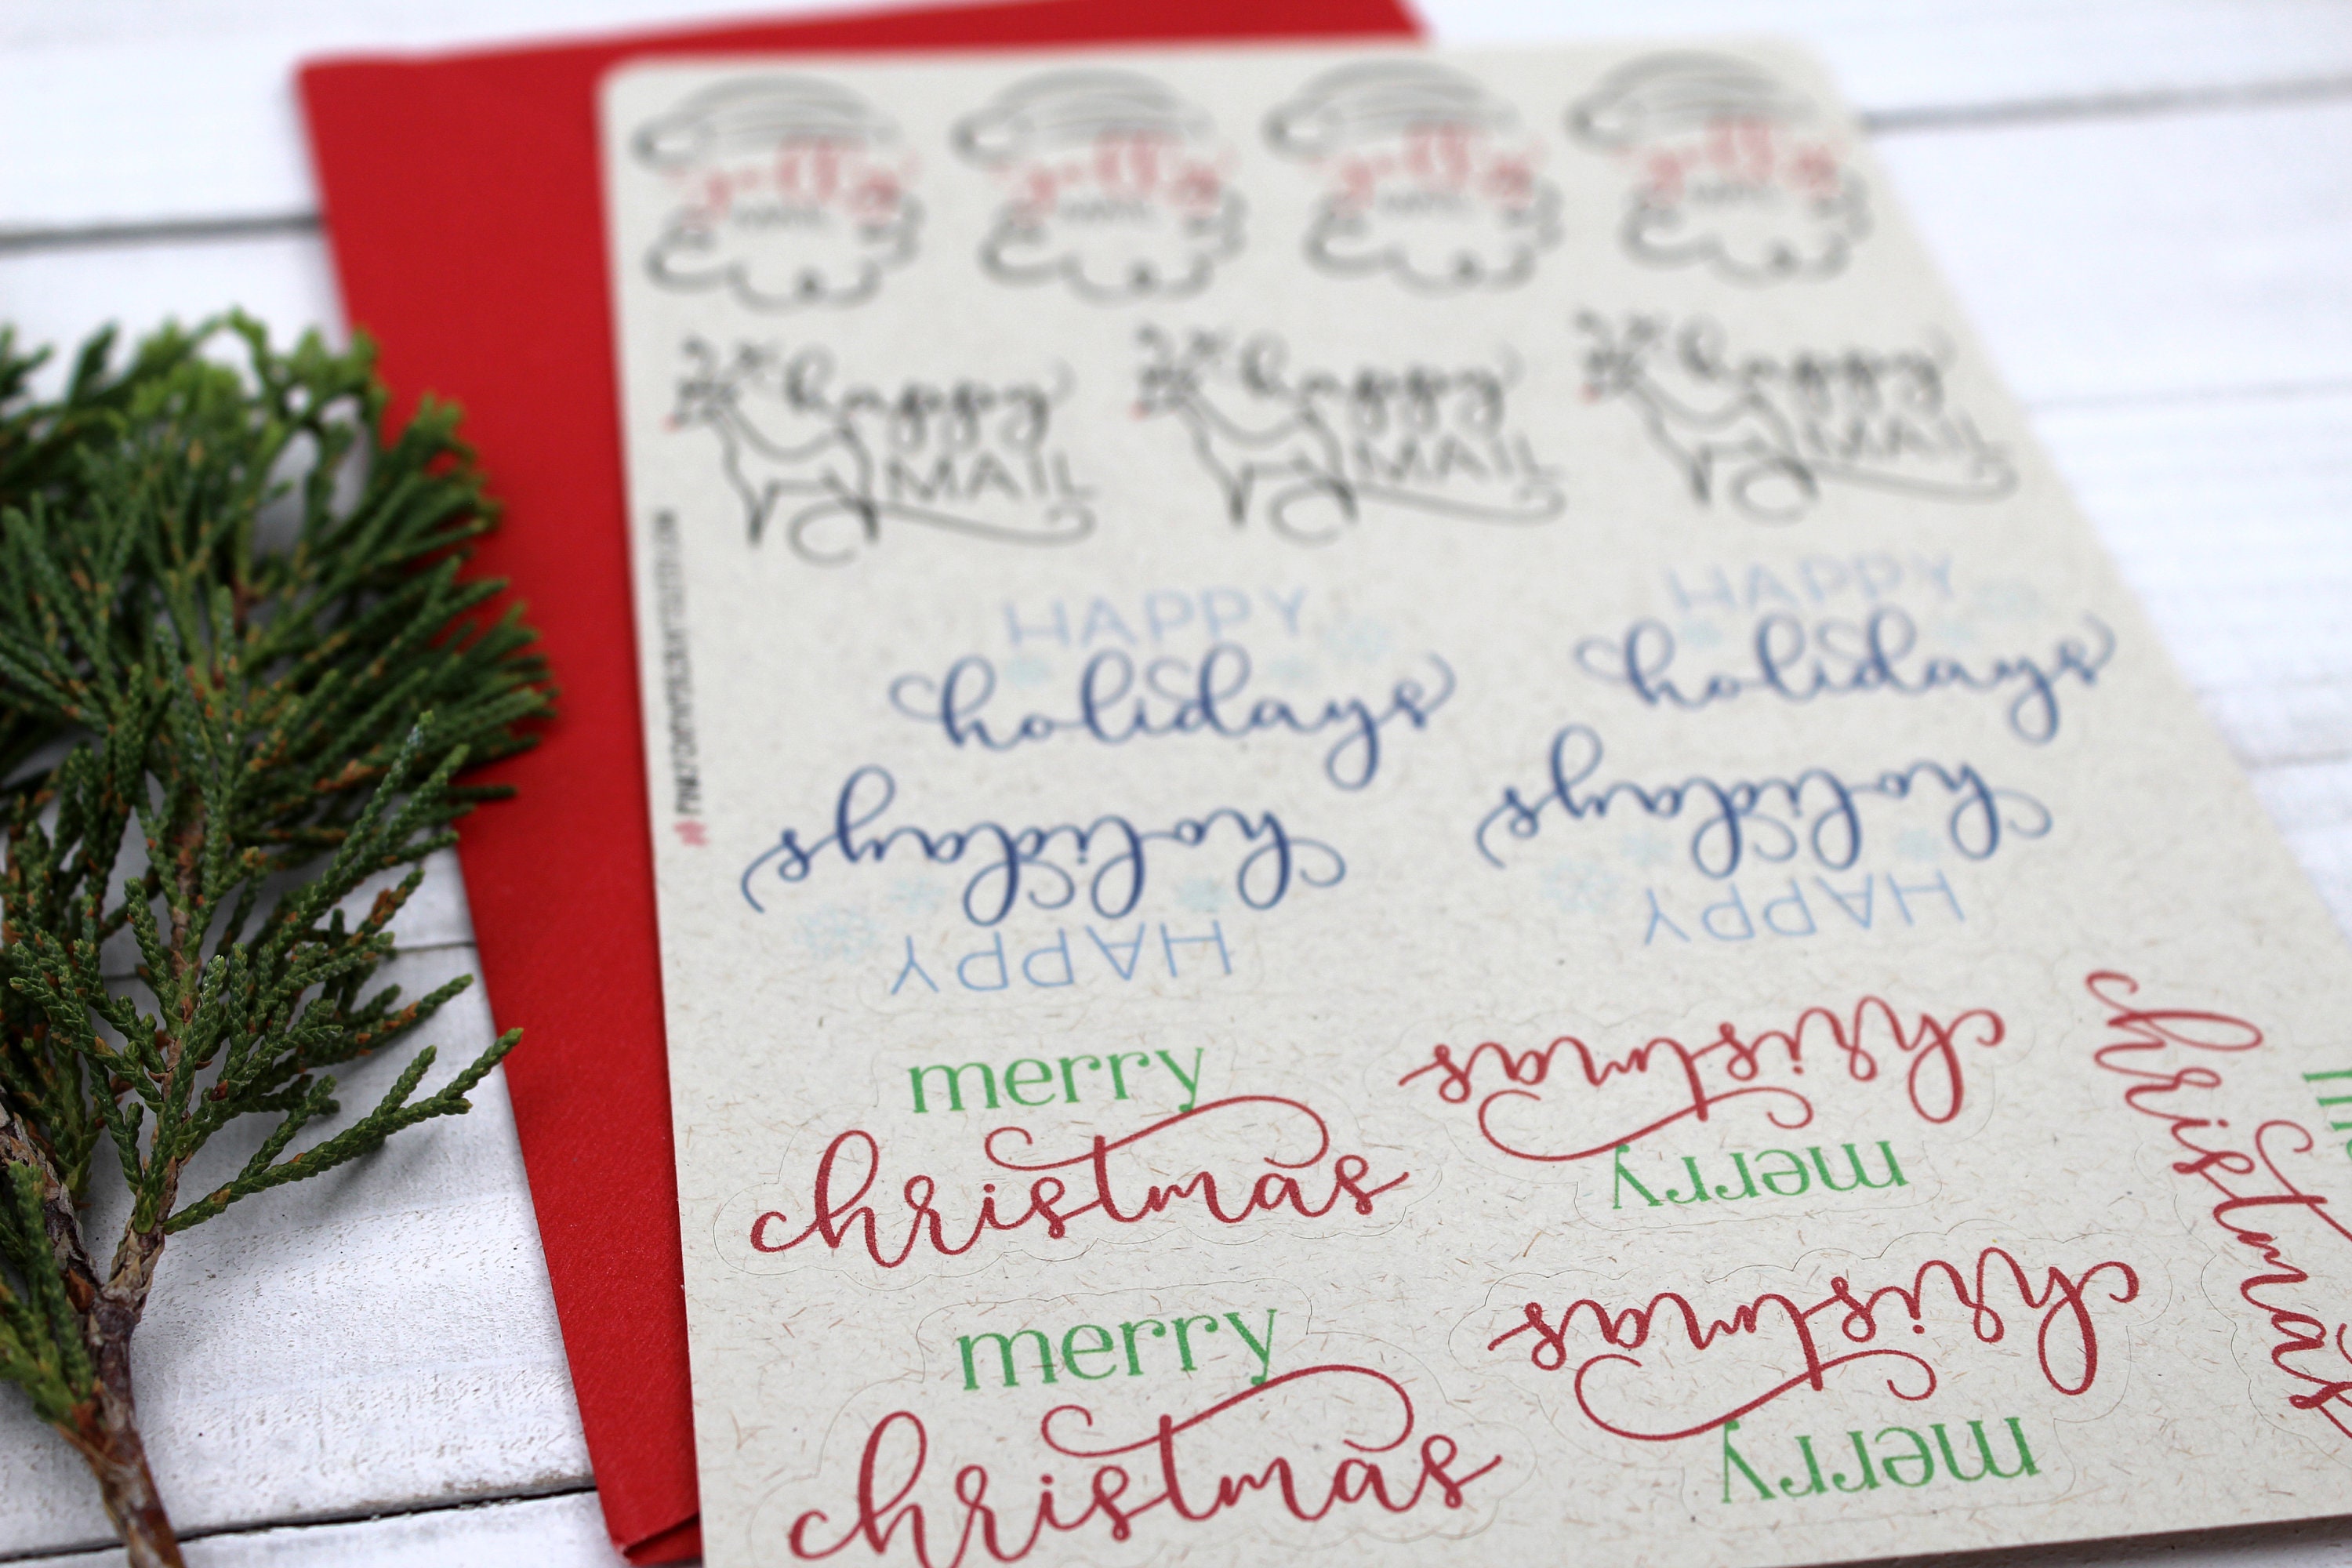 happy
MAIL
happy
MAIL
happy
MAIL
HAPPY
holidays
HAPPY
holidays
HAPPY
holidays
HAPPY
holidays
merry
christmas
merry
christmas
merry
christmas
merry
christmas
christmas